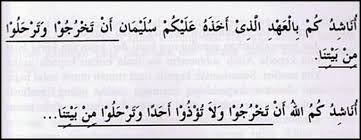 أُنَاشِدُ كُمْ بِالْعَهْدِ الَّذِىْ أَخَذَهُ عَلَيْكُمْ سُلَيْمَانُ أَنْ تَخْرُجُوْا وَتَرْحَلُوْا
مِنْ بَيْتِنَا
أُنَاشِدُ كُمُ اللهَ أَنْ تَخْرُجُوْا وَلاَ تُوْذُوْا أَحَدًا وَتَرْحَلُوْا مِنْ بَيْتِنَا...